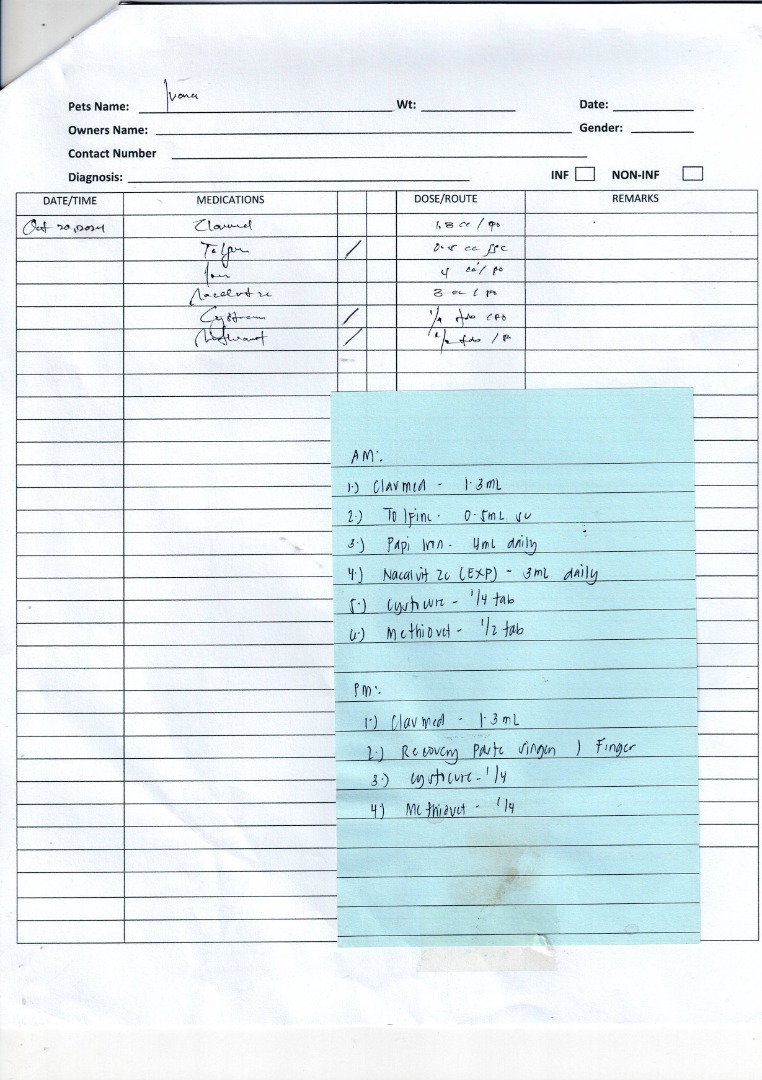 Pets Name: Ivana Wt: Date:
Owners Name: Gender:
Contact Number
Diagnosis: INF NON-INF
DATE/TIME MEDICATIONS DOSE/ROUTE REMARKS
Oct 20, 2024 Clavmed 1.3 cc / po
Tolfine / 0.5 cc / sc
Iron 4 cc / po
Nacalvit zc 3 cc / po
Cystocure / 1/4 tab / po
Methiovet / 1/2 tab / po
AM:.
1.) Clavmed - 1.3 mL
2.) Tolfine - 0.5mL su
3.) Papi Iron - 4mL daily
4.) Nacalvit zc (EXP) - 3mL daily
5.) Cystocure - 1/4 tab
6.) Methiovet - 1/2 tab
PM:.
1.) Clavmed - 1.3 mL
2.) Recovery Paste ) Finger
3.) Cystocure - 1/4
4.) Methiovet - 1/4